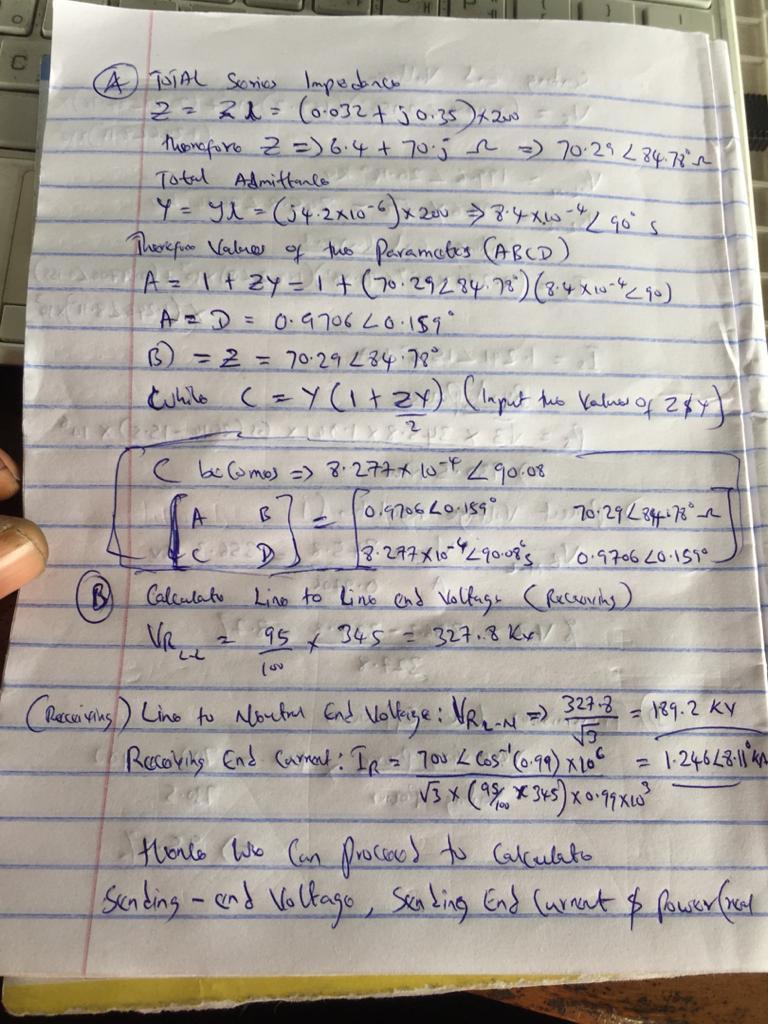 (A) Total Series Impedence
Z = Zl = (0.032 + j0.35) × 200
therefore Z => 6.4 + 70·j Ω => 70.29 ∠84.78° Ω
Total Admittance
Y = yl = (j4.2×10⁻⁶) × 200 => 8.4×10⁻⁴ ∠90° s
Therefore Values of the Parameters (ABCD)
A = 1 + ZY = 1 + (70.29∠84.78°)(8.4×10⁻⁴∠90)
A = D = 0.9706∠0.159°
B) = Z = 70.29∠84.78°
While C = Y(1 + ZY/2) (Input the Values of Z $ Y)
C becomes => 8.277×10⁻⁴ ∠90.08
[A B] = [0.9706∠0.159° 70.29∠84.78° Ω]
[C D] [8.277×10⁻⁴∠90.08°s 0.9706∠0.159°]
(B) Calculate Line to Line end Voltage (Receiving)
VR LL = 95/100 × 345 = 327.8 KV
(Receiving) Line to Neutral End Voltage: VR L-N => 327.8/√3 = 189.2 KV
Receiving End Current: IR = 700∠Cos⁻¹(0.99)×10⁶ / √3 × (95/100 × 345) × 0.99×10³ = 1.246∠8.11° KA
Hence We Can Proceed to Calculate
Sending-end Voltage, Sending End Current $ Power (real